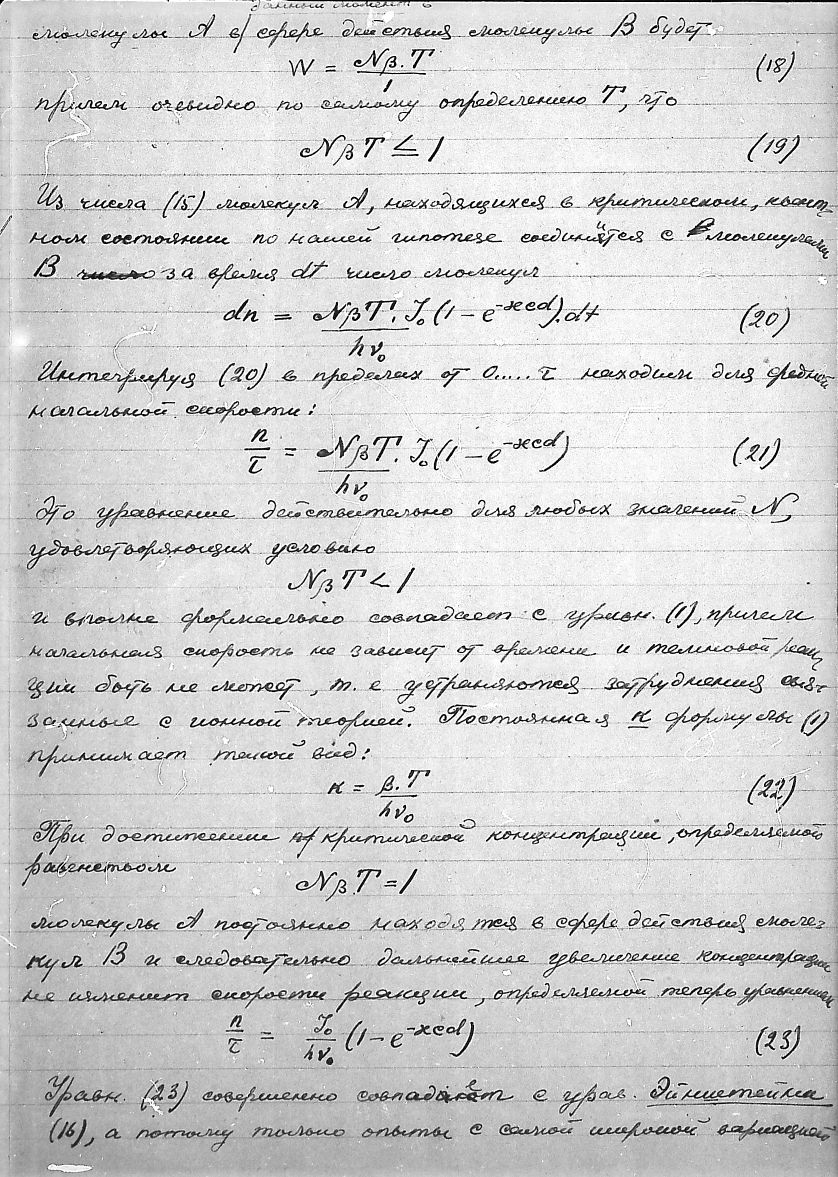 данный момент в
молекулы А в сфере действия молекулы В будет
W = Nβ.T / 1 (18)
причем очевидно по самому определению T, что
NβT ≤ 1 (19)
Из числа (15) молекул А, находящихся в критическом, квант-
ном состоянии по нашей гипотезе соединится с молекулами
В число за время dt число молекул
dn = NβT/hν₀ . J₀(1 – e^-ϰcd).dt (20)
Интегрируя (20) в пределах от 0..... τ находим для средней
начальной скорости:
n/τ = NβT/hν₀ . J₀(1 – e^-ϰcd) (21)
Это уравнение действительно для любых значений N,
удовлетворяющих условию
NβT < 1
и вполне формально совпадает с уравн. (1), причем
начальная скорость не зависит от времени и темновой реак-
ции быть не может, т. е устраняются затруднения свя-
занные с ионной теорией. Постоянная к формулы (1)
принимает такой вид:
к = β.T/hν₀ (22)
При достижении критической концентрации, определяемой
равенством
NβT = 1
молекулы А постоянно находятся в сфере действия моле-
кул В и следовательно дальнейшее увеличение концентрации
не изменит скорости реакции, определяемой теперь уравнением
n/τ = J₀/hν₀ (1 – e^-ϰcd) (23)
Уравн. (23) совершенно совпадает с урав. Эйнштейна
(16), а потому только опыты с самой широкой вариацией